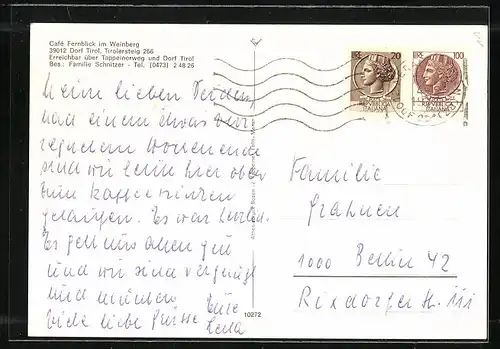 Café Fernblick im Weinberg
39012 Dorf Tirol, Tirolersteig 266
Erreichbar über Tappeinerweg und Dorf Tirol
Bes.: Familie Schnitzer - Tel. (0473) 2 48 26
LIRE 20
LIRE 100
Meine lieben Beiden,
nach einem etwas ver-
regneten Wochenende
sind wir heute hier oben
zum Kaffeetrinken
gelangen. Es war herrlich.
Es geht uns allen gut
und wir sind vergnügt
und munter
Viele liebe Grüsse Eure
Familie
1000 Berlin 42
Rixdorfer Str. 111
10272